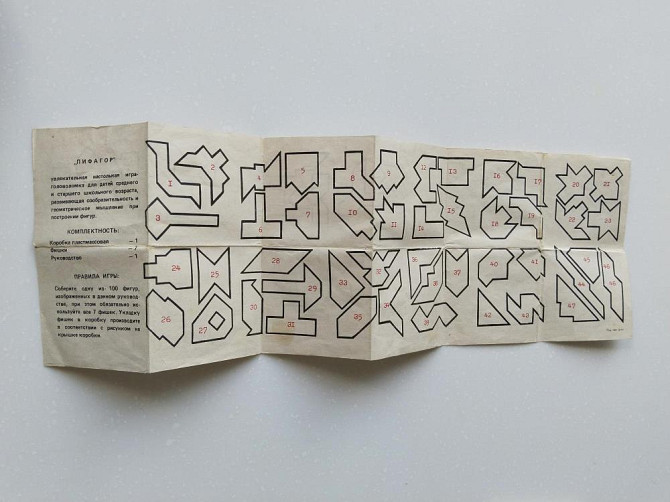 „ПИФАГОР"
увлекательная настольная игра-
головоломка для детей среднего
и старшего школьного возраста,
развивающая сообразительность и
геометрическое мышление при
построении фигур.
КОМПЛЕКТНОСТЬ:
Коробка пластмассовая – 1
Фишки – 7
Руководство – 1
ПРАВИЛА ИГРЫ:
Соберите одну из 100 фигур,
изображенных в данном руковод-
стве, при этом обязательно ис-
пользуйте все 7 фишек. Укладку
фишек в коробку производите
в соответствии с рисунком на
крышке коробки.
1 2 4 5 8 9 12 13 16 17 20 21
3 6 7 10 11 14 15 18 19 22 23
24 25 28 29 32 33 36 37 40 41 45
26 27 30 31 35 38 39 42 43 44 46 47